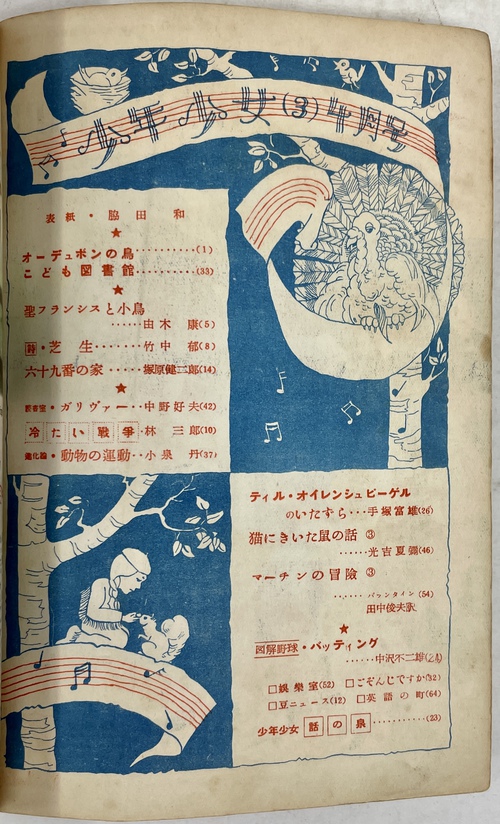 少年少女(3)4月号
表紙・脇田 和
★
オーデュボンの鳥・・・・・・・・・・(1)
こども図書館・・・・・・・・・・(33)
★
聖フランシスと小鳥
・・・・・・由木 康(5)
詩・芝 生・・・・・・・竹中 郁(8)
六十九番の家・・・・・塚原健二郎(14)
★
図書室・ガリヴァー・・中野好夫(42)
冷たい戦爭・林 三郎(10)
進化論・動物の運動・・小泉 丹(37)
ティル・オイレンシュピーゲル
のいたずら・・・手塚富雄(26)
猫にきいた鼠の話 ③
・・・・・・光吉夏彌(46)
マーチンの冒險 ③
・・・・・・バランタイン(54)
田中俊夫訳
★
図解野球・バッティング
・・・・・・中沢不二雄(24)
□娯樂室(52) □ごぞんじですか(32)
□豆ニュース(12) □英語の町(64)
少年少女 話の泉・・・・・・・・・・・(23)